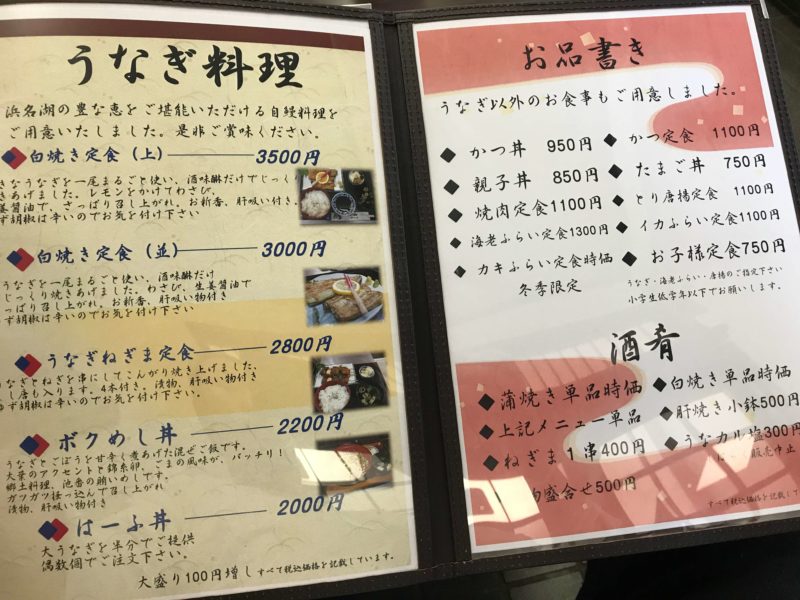 うなぎ料理
浜名湖の豊な恵をご堪能いただける自経料理を
ご用意いたしました。是非ご賞味ください。
白焼き定食(上) 3500円
きなうなぎを一尾まるごと使い、酒味醂だけでじっく
きあげました。レモンをかけてわさび、
姜醤油で、さっぱり召し上がれ。お新香、肝吸い付き。
ず胡椒は辛いのでお気を付け下さい
白焼き定食(並) 3000円
うなぎを一尾まるごと使い、酒味醂だけ
じっくり焼きあげました。わさび、生姜醤油で
っぱり召し上がれ。お新香、肝吸い物付き
ず胡椒は辛いのでお気を付け下さい
うなぎねぎま定食 2800円
なぎとねぎを串にしてこんがり焼き上げました。
し唐も入ります。4本付き。漬物、肝吸い物付き
ず胡椒は辛いのでお気を付け下さい。
ボクめし丼 2200円
うなぎとごぼうを甘辛く煮あげた混ぜご飯です。
大葉のアクセントと錦糸卵、ごまの風味が、バッチリ!
郷土料理、池番の賄いめしです。
ガツガツ掻っ込んで召し上がれ
漬物、肝吸い物付き
はーふ丼 2000円
大うなぎを半分でご提供
偶数個でご注文下さい。
大盛り100円増し すべて税込価格を記載しています。
お品書き
うなぎ以外のお食事もご用意しました。
かつ丼 950円
かつ定食 1100円
親子丼 850円
たまご丼 750円
焼肉定食1100円
とり唐揚定食 1100円
海老ふらい定食1300円
イカふらい定食1100円
カキふらい定食時価
冬季限定
お子様定食750円
うなぎ・海老ふらい・唐揚のご指定下さい
小学生低学年以下でお願いします。
酒肴
蒲焼き単品時価
白焼き単品時価
上記メニュー単品
肝焼き小鉢500円
ねぎま1串400円
うなカル塩300
販売中止
盛合せ500円
すべて税込価格を記載して